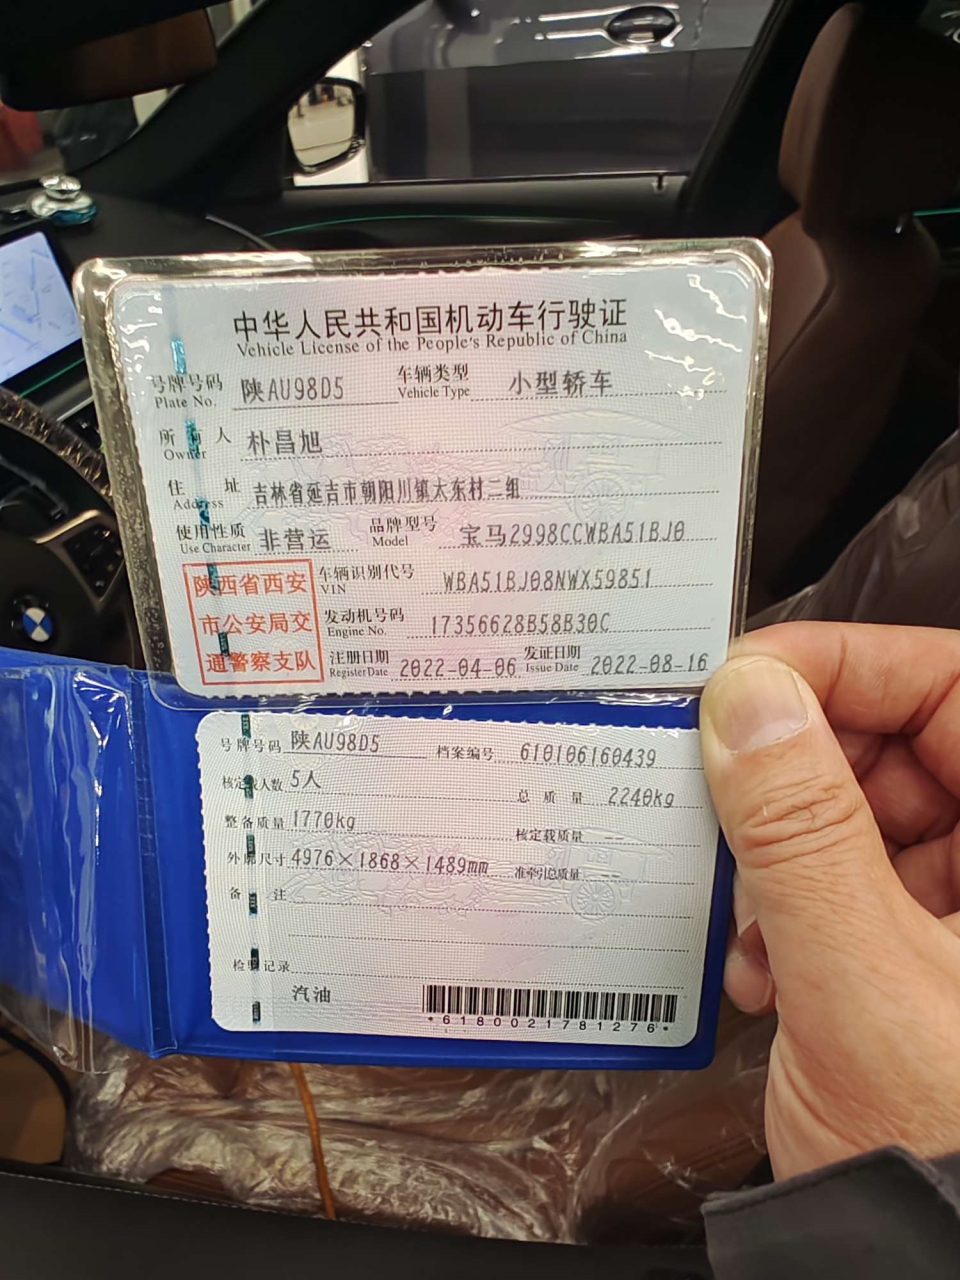 中华人民共和国机动车行驶证
Vehicle License of the People's Republic of China
号牌号码 陕AU98D5 车辆类型 小型轿车
Plate No. Vehicle Type
所有人 朴昌旭
Owner
住址 吉林省延吉市朝阳川镇太东村二组
Address
使用性质 非营运 品牌型号 宝马2998CCWBA51BJ0
Use Character Model
陕西省西安
市公安局交
通警察支队
车辆识别代号 WBA51BJ08NWX59851
VIN
发动机号码 17356628B58B30C
Engine No.
注册日期 2022-04-06 发证日期 2022-08-16
Register Date Issue Date
号牌号码 陕AU98D5 档案编号 610106160439
核定载人数 5人 总质量 2240kg
整备质量 1770kg 核定载质量 --
外廓尺寸 4976×1868×1489mm 准牵引总质量 --
备注
检验记录
汽油
*6180021781276*